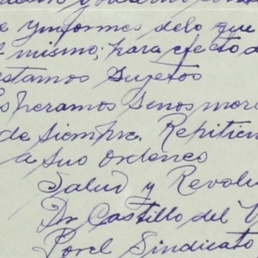 e ynformes delo que
l mismo, para efecto d
stamos sujetos
speramos Senos
de siempre. Repitien
a sus ordenes
Salud y Revolu
Dr Castillo del V
Porel Sindicato